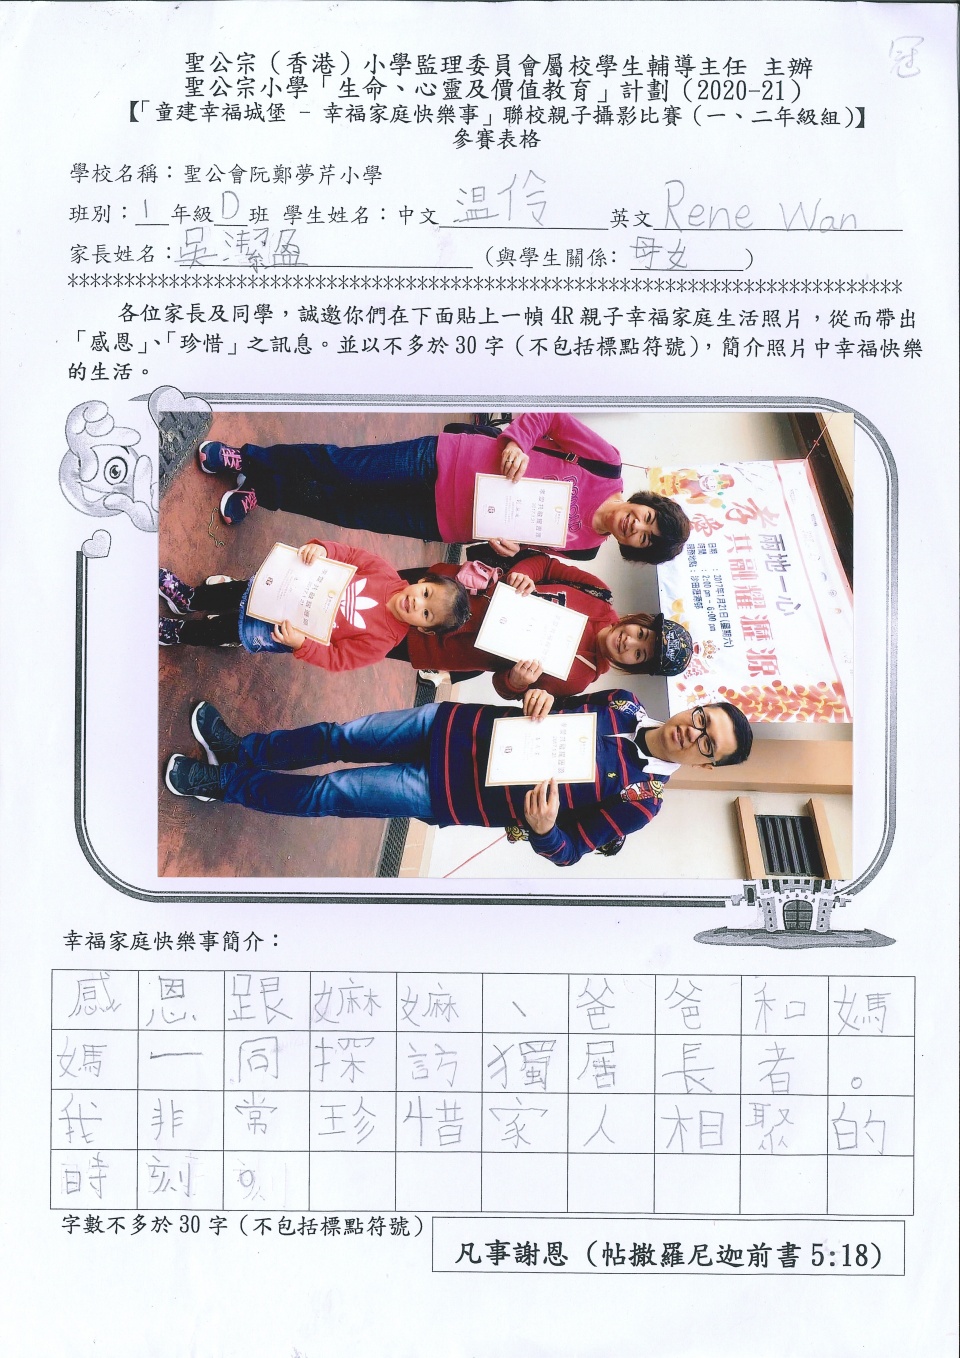 冠
聖公宗（香港）小學監理委員會屬校學生輔導主任 主辦
聖公宗小學「生命、心靈及價值教育」計劃（2020-21）
【「童建幸福城堡 - 幸福家庭快樂事」聯校親子攝影比賽（一、二年級組）】
參賽表格
學校名稱：聖公會阮鄭夢芹小學
班別：1 年級 D 班 學生姓名：中文 温伶 英文 Rene Wan
家長姓名：吳潔盈 （與學生關係: 母女 ）
**************************************************************************
各位家長及同學，誠邀你們在下面貼上一幀 4R 親子幸福家庭生活照片，從而帶出
「感恩」、「珍惜」之訊息。並以不多於 30 字（不包括標點符號），簡介照片中幸福快樂
的生活。
兩地一心
孝愛共融耀瀝源
日期：2017年1月21日(星期六)
時間：2:00 pm - 6:00 pm
幸福家庭快樂事簡介：
感恩跟嫲嫲、爸爸和媽
媽一同探訪獨居長者。
我非常珍惜家人相聚的
時刻。
字數不多於 30 字（不包括標點符號）
凡事謝恩（帖撒羅尼迦前書 5:18）